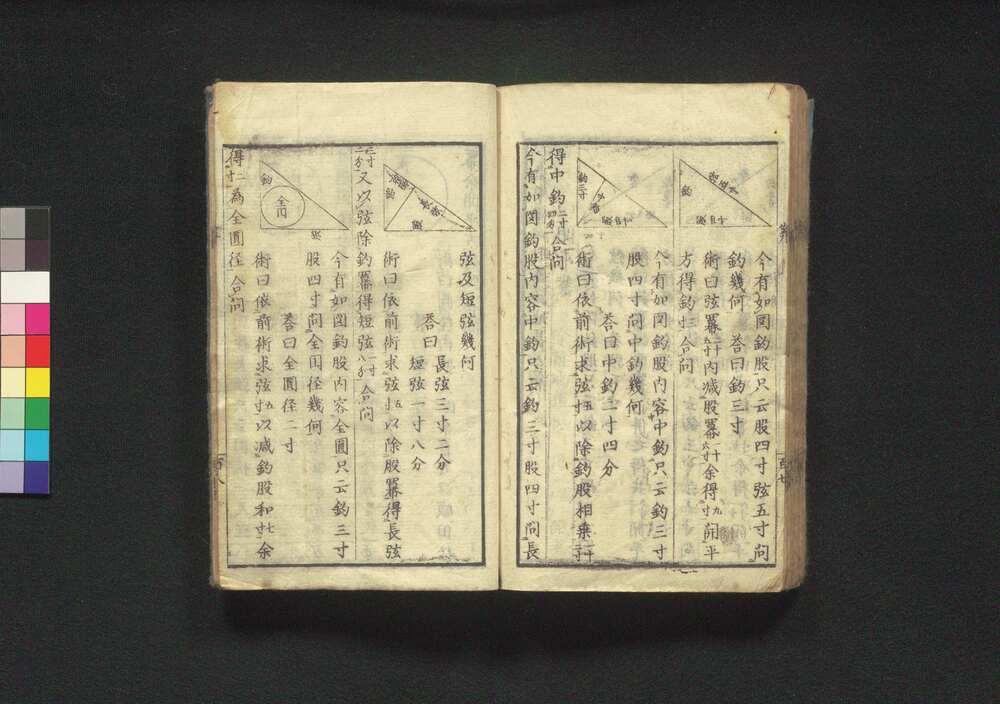 今有如図鈎股只云股四寸弦五寸問
鈎幾何　答曰鈎三寸
術曰弦冪二十五寸内減股冪一十六寸余得九寸開平
方得鈎三寸合問
今有如図鈎股内容中鈎只云鈎三寸
股四寸問中鈎幾何
答曰中鈎二寸四分
術曰依前術求弦五寸以除鈎股相乗一十二寸
得中鈎二寸四分合問
今有如図鈎股内容中鈎只云鈎三寸股四寸問長
鈎
弦五寸
股四寸
鈎三寸
中鈎
股四寸
百七
弦及短弦幾何
答曰
長弦三寸二分
短弦一寸八分
術曰依前術求弦五寸以除股冪得長弦
三寸二分又以弦除鈎冪得短弦一寸八分合問
今有如図鈎股内容全圓只云鈎三寸
股四寸問全円径幾何
答曰全圓径二寸
術曰依前術求弦五寸以減鈎股和七寸余
得二寸為全圓径合問
鈎
短弦
長弦
股
鈎
全円
股
百八